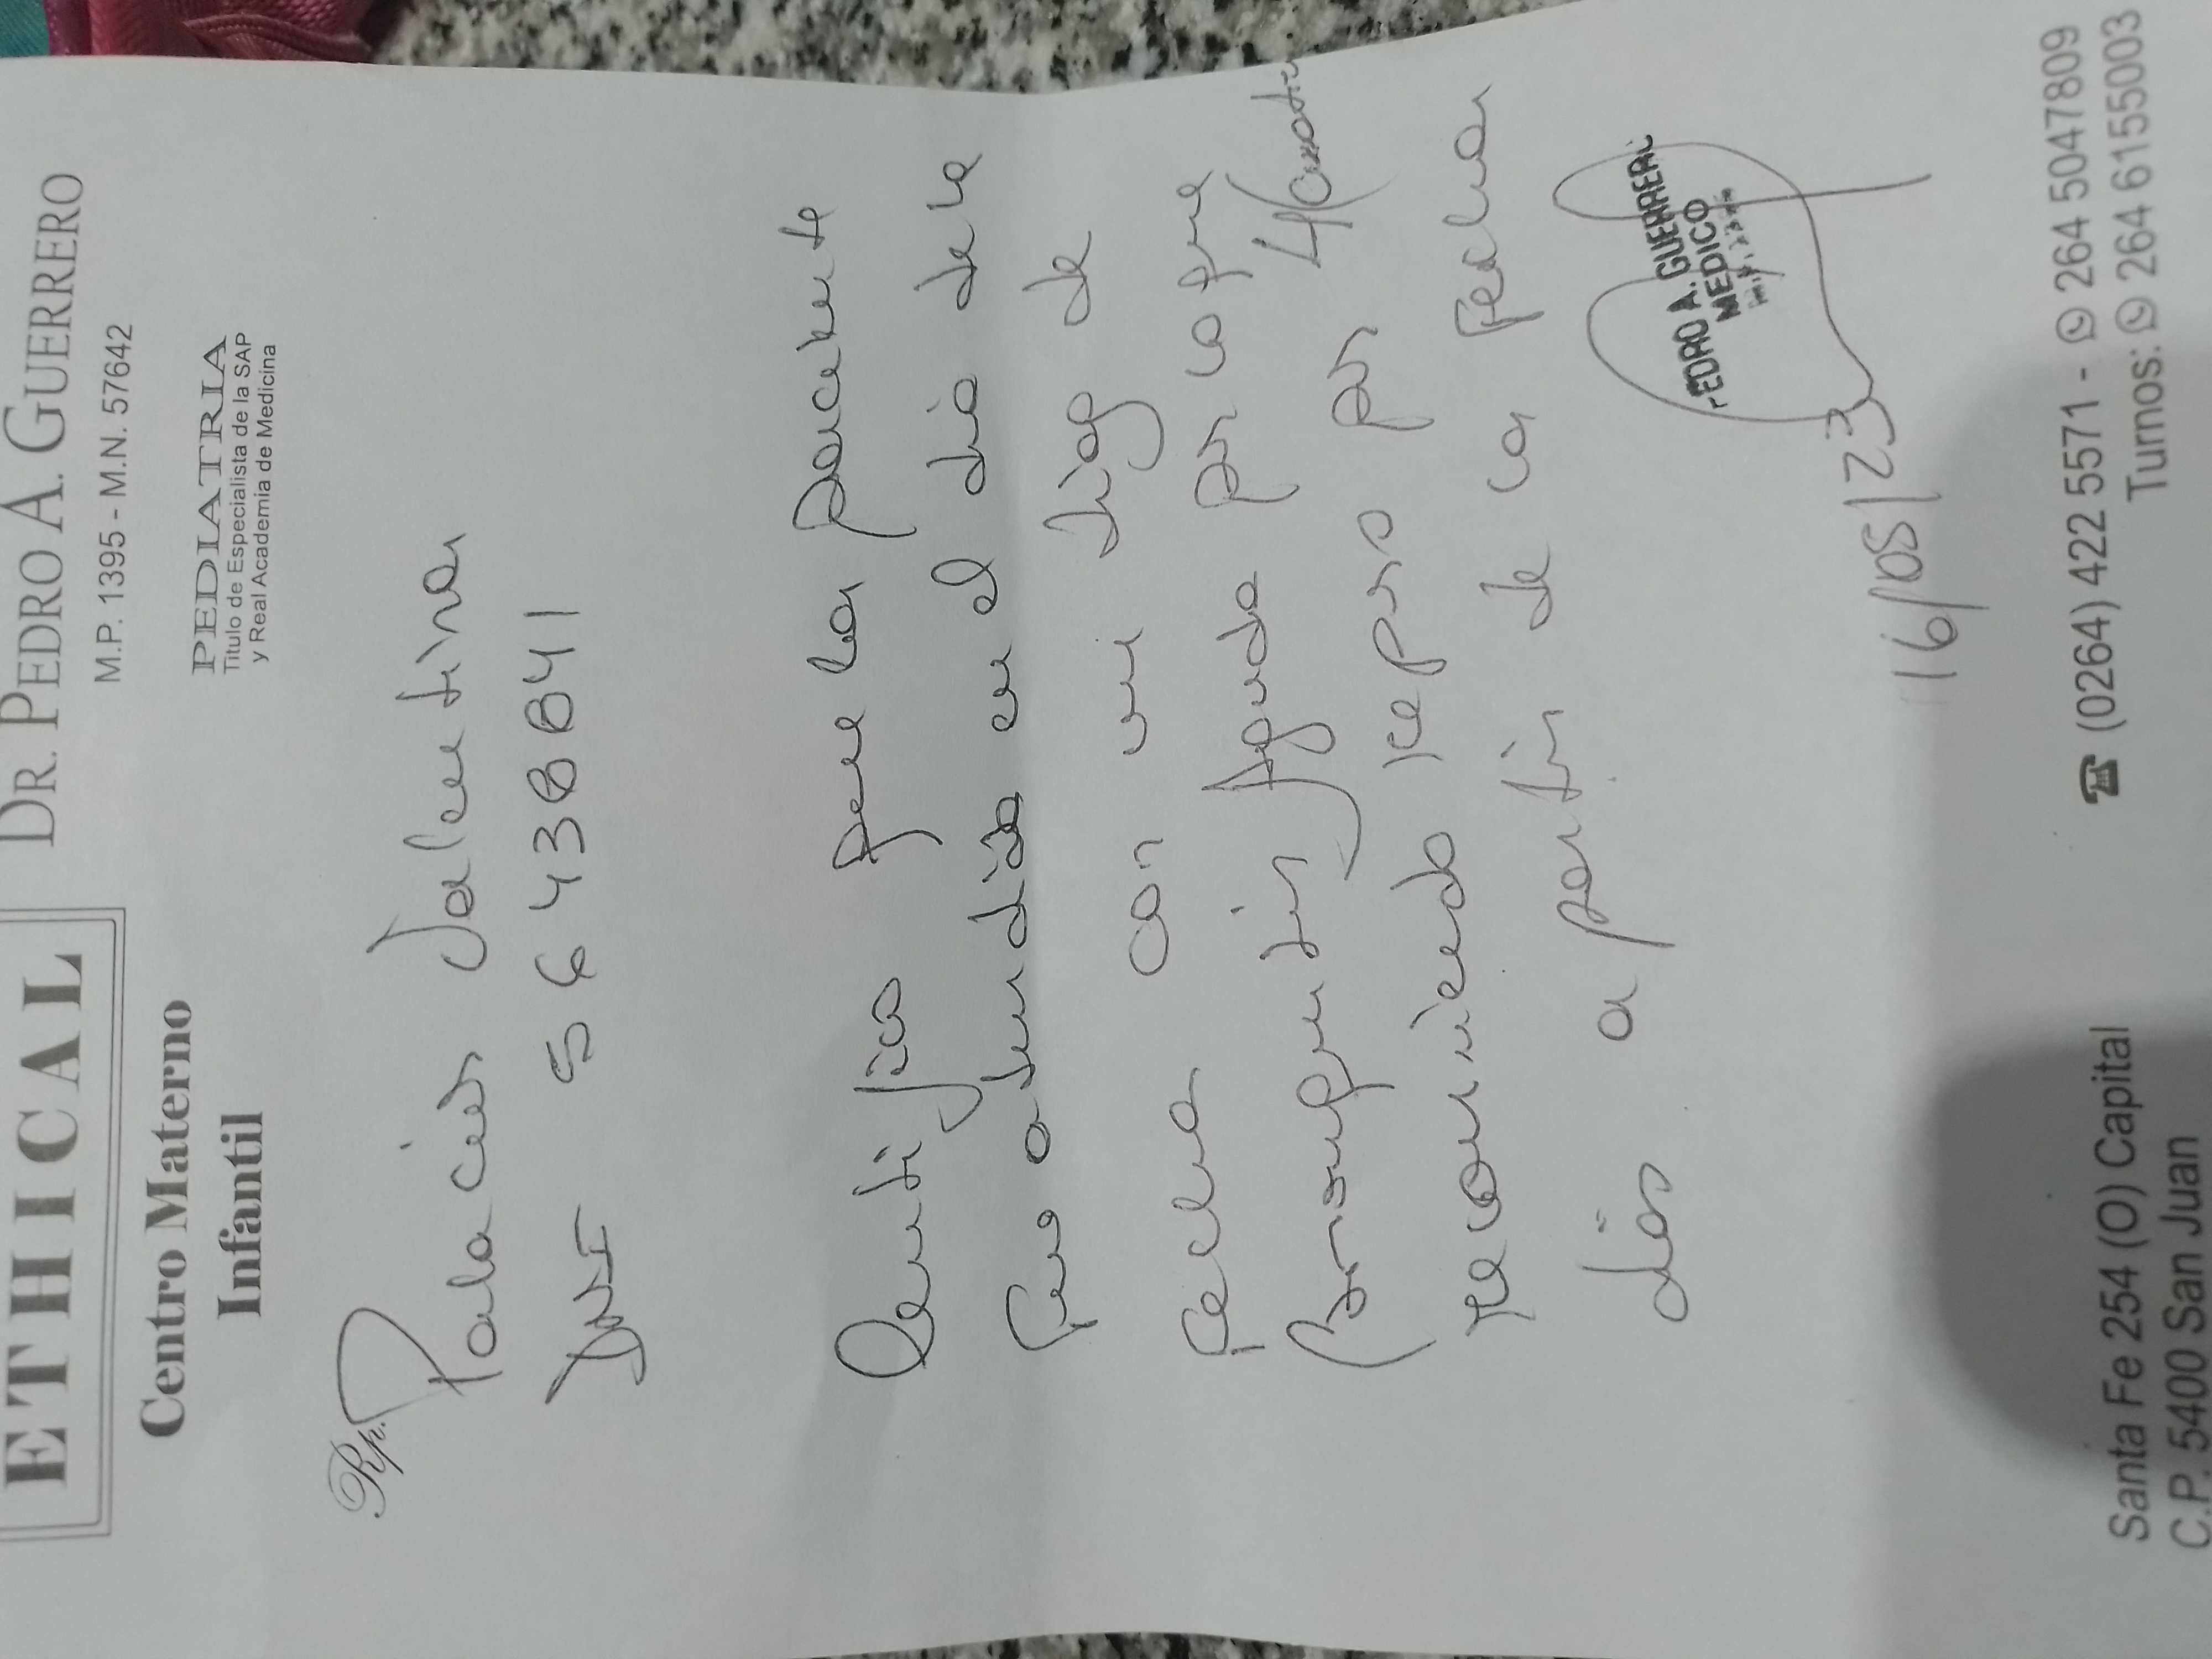 ETHICAL
Centro Materno
Infantil
DR. PEDRO A. GUERRERO
M.P. 1395 - M.N. 57642
PEDIATRIA
Titulo de Especialista de la SAP
y Real Academia de Medicina
Rp.
Palacios Valentina
DNI 56438841
Certifico que la paciente
fue atendida en el dia de la
fecha con mi diag de
Bronquitis Aguda por lo que
recomiendo reposo por 4 (cuatro
dias a partir de la fecha
PEDRO A. GUERRERO
MEDICO
16/05/23
Santa Fe 254 (O) Capital
C.P. 5400 San Juan
(0264) 422 5571 - 264 5047809
Turnos: 264 6155003